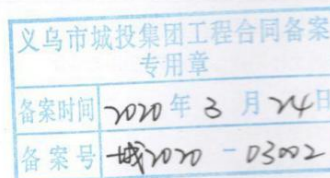 义乌市城投集团工程合同备案
专用章
备案时间 2020 年 3 月 24日
备案号 城2020-03002